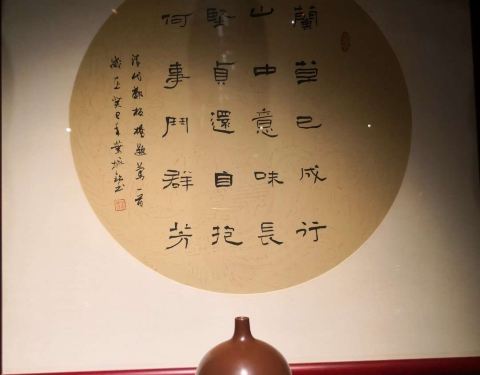 蘭草已成行
山中意味長
堅貞還自抱
何事鬥群芳
清代鄭板橋題蘭一首
癸巳年葉振书